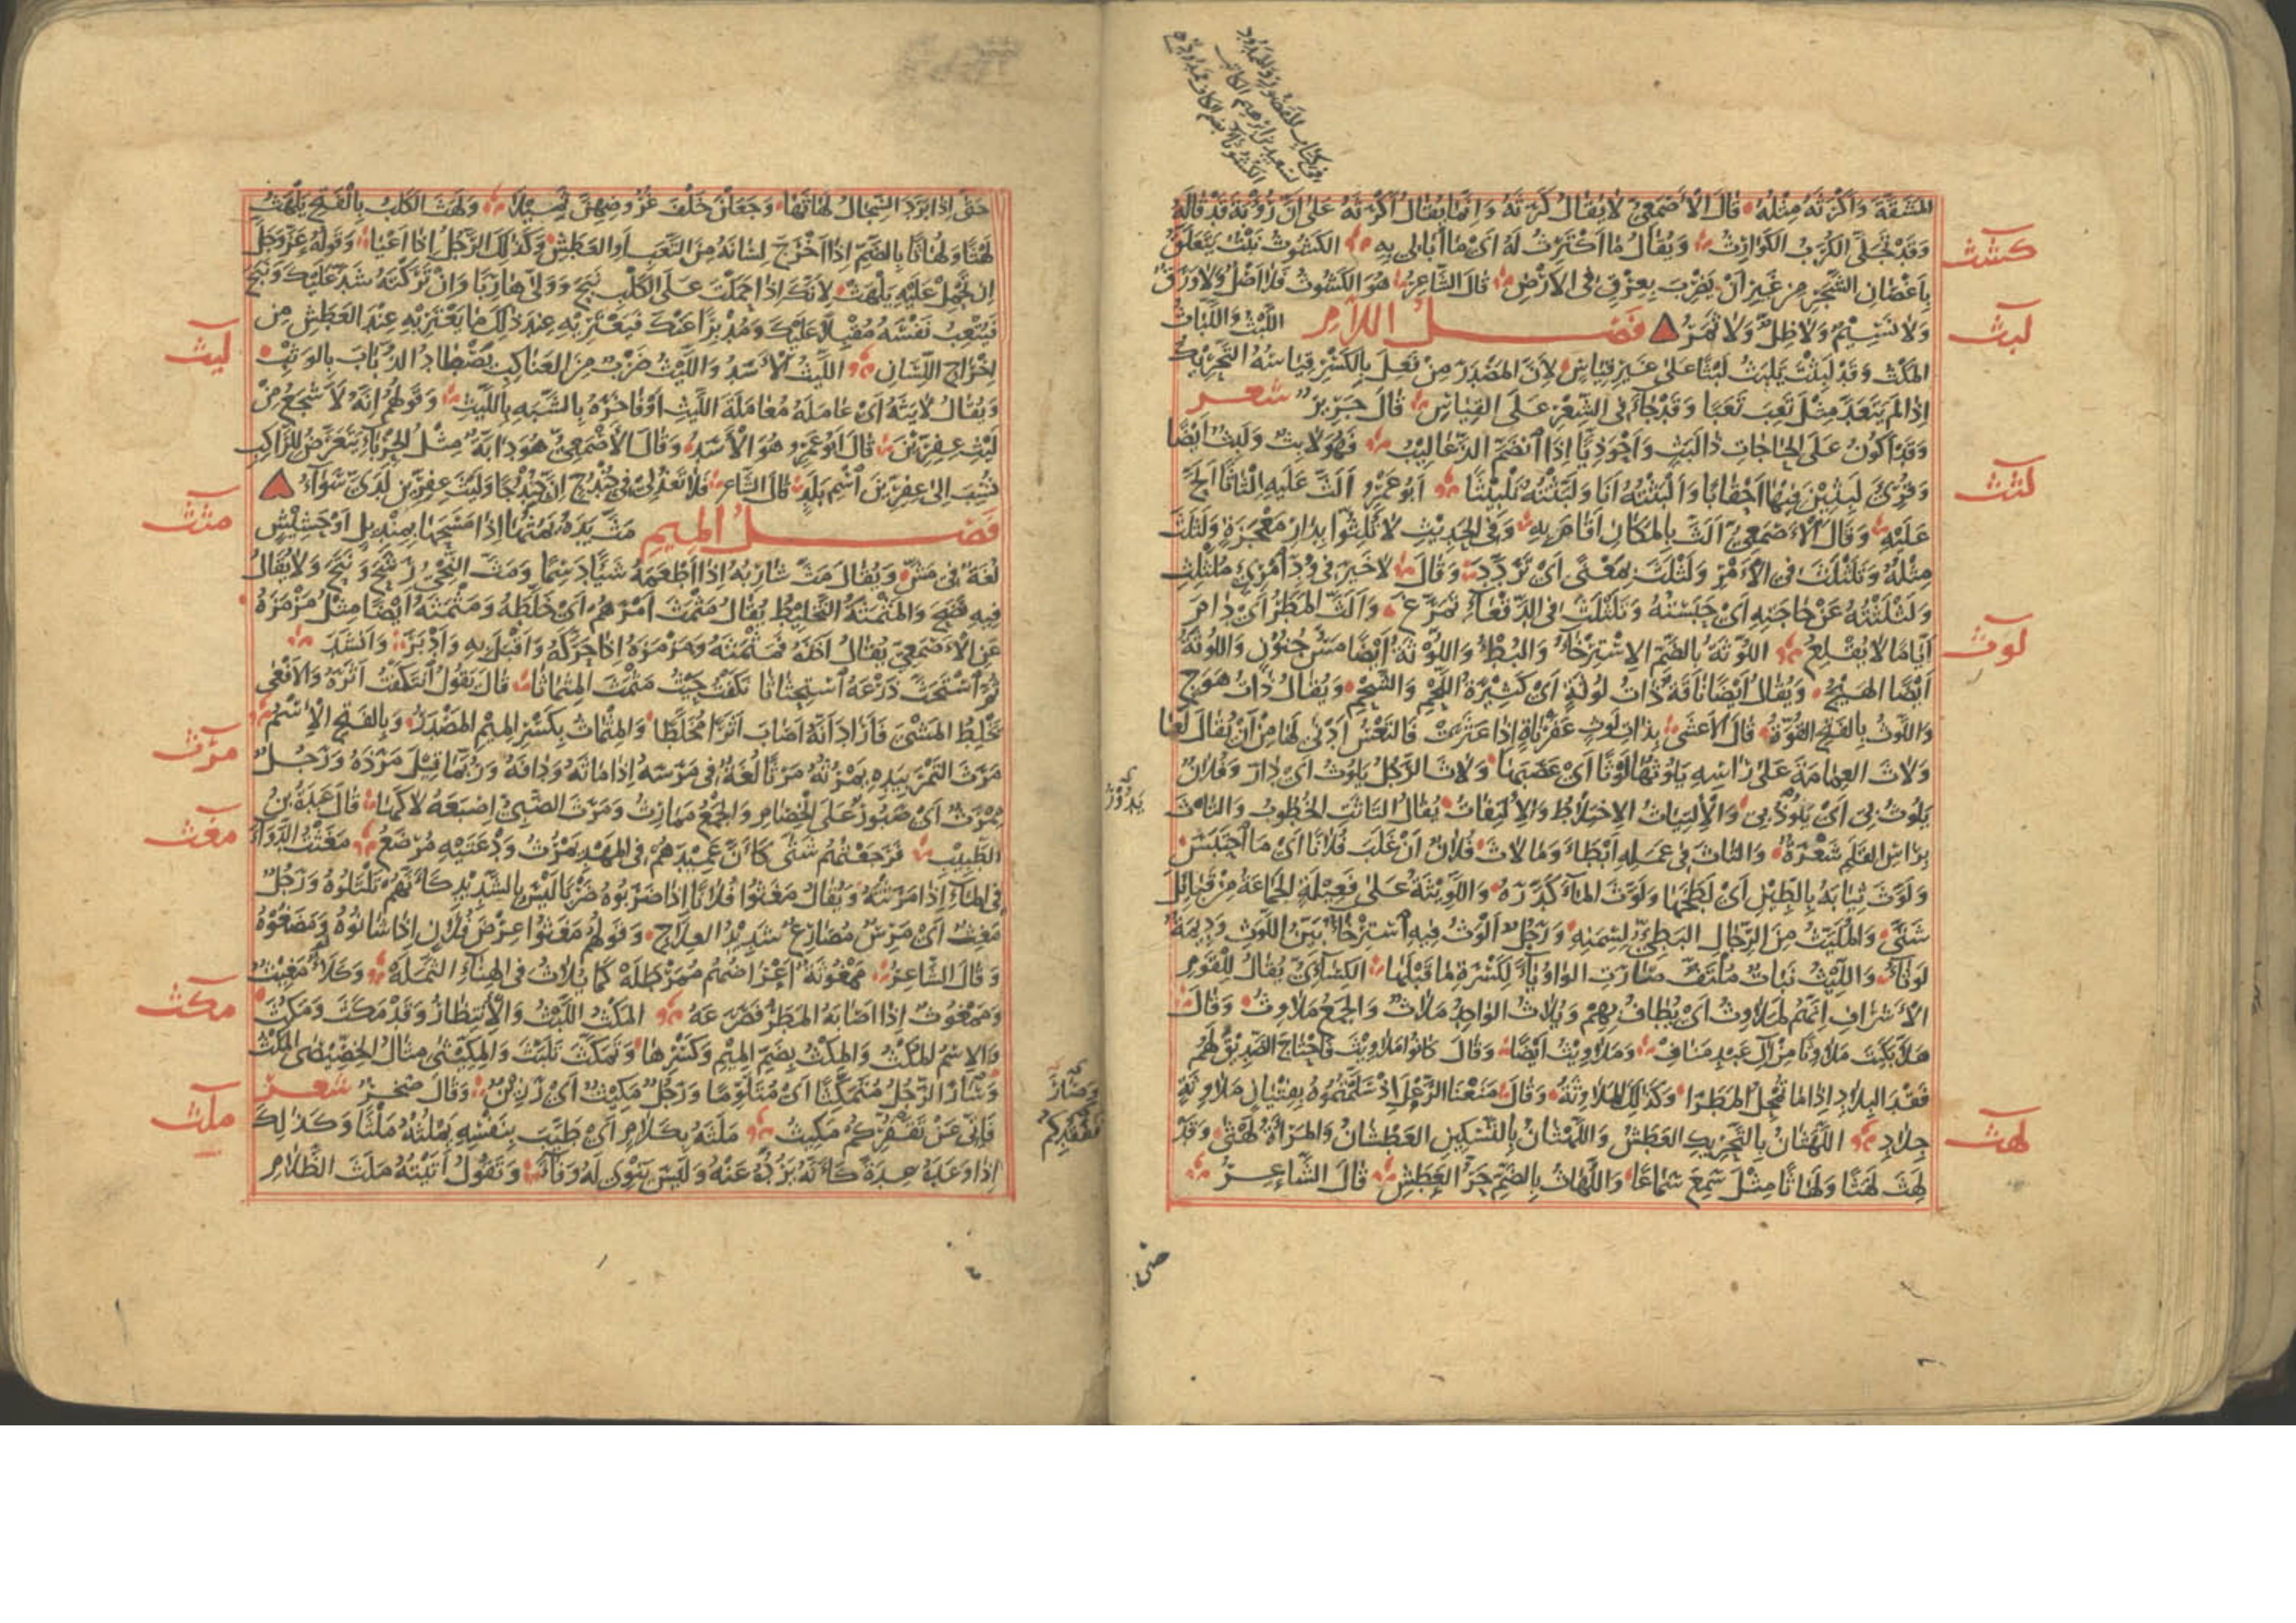 في كتاب المقصور والممدود
لسعيد بن ابرهيم الكاتب
الكشوثاء بضم الكاف ممدود
المَشَقَّة وَأَكْرَثَهُ مِثْلُهُ قَالَ الأَصْمَعِيُّ لَا يُقَالُ كَرَثَهُ وَإِنَّمَا يُقَالُ أَكْرَثَهُ عَلَى أَنَّ رُؤْبَةَ قَدْ قَالَهُ
وَقَدْ تُجَلَّى الكُرَبُ الكَوَارِثُ وَيُقَالُ مَا أَكْتَرِثُ لَهُ أَيْ مَا أُبَالِي بِهِ الكَشُوثُ نَبْتٌ يَتَعَلَّقُ
كشث
بِأَغْصَانِ الشَّجَرِ مِنْ غَيْرِ أَنْ يَضْرِبَ بِعِرْقٍ فِي الأَرْضِ قَالَ الشَّاعِرُ هُوَ الكَشُوثُ فَلَا أَصْلٌ وَلَا وَرَقٌ
وَلَا نَسِيمٌ وَلَا ظِلٌّ وَلَا ثَمَرُ فَصْلُ اللَّامِ اللَّبْثُ وَاللَّبَاثُ
لبث
المكث وَقَدْ لَبِثَ يَلْبَثُ لَبْثًا عَلَى غَيْرِ قِيَاسٍ لِأَنَّ المَصْدَرَ مِنْ فَعِلَ بِالكَسْرِ قِيَاسُهُ التَّحْرِيكُ
إِذَا لَمْ يَتَعَدَّ مِثْلَ تَعِبَ تَعَبًا وَقَدْ جَاءَ فِي الشِّعْرِ عَلَى القِيَاسِ قَالَ جَرِيرٌ شعر
وَقَدْ أَكُونُ عَلَى الحَاجَاتِ ذَا لَبَثٍ وَأَحْوَذِيًّا إِذَا انْضَمَّ الذَّعَالِيبُ فَهُوَ لَابِثٌ وَلَبِثٌ أَيْضًا
وَقُرِئَ لَبِثِينَ فِيهَا أَحْقَابًا وَأَلْبَثْتُهُ أَنَا وَلَبَّثْتُهُ تَلْبِيثًا أَبُو عَمْرٍو أَلَثَّ عَلَيْهِ إِلْثَاثًا أَلَحَّ
لثث
عَلَيْهِ وَقَالَ الأَصْمَعِيُّ أَلَثَّ بِالمَكَانِ أَقَامَ بِهِ وَفِي الحَدِيثِ لَا تُلِثُّوا بِدَارِ مَعْجَزَةٍ وَلَثْلَثَ
مِثْلُهُ وَتَلَثْلَثَ فِي الأَمْرِ وَلَثْلَثَ بِمَعْنًى أَيْ تَرَدَّدَ وَقَالَ لَا خَيْرَ فِي وُدِّ امْرِئٍ مُلَثْلِثِ
وَلَثْلَثْتُهُ عَنْ حَاجَتِهِ أَيْ حَبَسْتُهُ وَتَلَثْلَثَ فِي الدَّقْعَاءِ تَمَرَّغَ وَأَلَثَّ المَطَرُ أَيْ دَامَ
أَيَّامًا لَا يُقْلِعُ اللُّوثَةُ بِالضَّمِّ الاسْتِرْخَاءُ وَالبُطْءُ وَاللُّوثَةُ أَيْضًا مَسُّ جُنُونٍ وَاللُّوثَةُ
لوث
أَيْضًا الهَيْجُ وَيُقَالُ أَيْضًا نَاقَةٌ ذَاتُ لُوثَةٍ أَيْ كَثِيرَةُ اللَّحْمِ وَالشَّحْمِ وَيُقَالُ ذَاتُ هَوَجٍ
وَاللَّوْثُ بِالفَتْحِ القُوَّةُ قَالَ الأَعْشَى بِذَاتِ لَوْثٍ عَفَرْنَاةٍ إِذَا عَثَرَتْ فَالتَّعْسُ أَدْنَى لَهَا مِنْ أَنْ يُقَالَ لَعَا
وَلَاثَ العِمَامَةَ عَلَى رَأْسِهِ يَلُوثُهَا لَوْثًا أَيْ عَصَبَهَا وَلَاثَ الرَّجُلُ يَلُوثُ أَيْ دَارَ وَفُلَانٌ
يَدُورُ
يَلُوثُ بِي أَيْ يَلُوذُ بِي وَالِالْتِيَاثُ الِاخْتِلَاطُ وَالِالْتِفَافُ يُقَالُ الْتَاثَتِ الخُطُوبُ وَالْتَاثَ
بِرَأْسِ القَلَمِ شَعْرَةٌ وَالْتَاثَ فِي عَمَلِهِ أَبْطَأَ وَمَا لَاثَ فُلَانٌ أَنْ غَلَبَ فُلَانًا أَيْ مَا احْتَبَسَ
وَلَوَّثَ ثِيَابَهُ بِالطِّينِ أَيْ لَطَخَهَا وَلَوَّثَ المَاءَ كَدَّرَهُ وَاللَّوِيثَةُ عَلَى فَعِيلَةٍ الجَمَاعَةُ مِنْ قَبَائِلَ
شَتَّى وَالمُلَيَّثُ مِنَ الرِّجَالِ البَطِيءُ لِسِمَنِهِ وَرَجُلٌ أَلْوَثُ فِيهِ اسْتِرْخَاءٌ بَيِّنُ اللَّوَثِ وَدِيمَةٌ
لَوْثَاءُ وَاللِّيثُ نَبَاتٌ مُلْتَفٌّ صَارَتِ الوَاوُ يَاءً لِكَسْرَةِ مَا قَبْلَهَا الكِسَائِيُّ يُقَالُ لِلْقَوْمِ
الأَشْرَافِ إِنَّهُمْ لَمَلَاوِثُ أَيْ يُطَافُ بِهِمْ وَيُلَاثُ الوَاحِدُ مَلَاثٌ وَالجَمْعُ مَلَاوِثُ وَقَالَ
هَلَّا بَكَيْتَ مَلَاوِثًا مِنْ آلِ عَبْدِ مَنَافِ وَمَلَاوِيثُ أَيْضًا وَقَالَ كَانُوا مَلَاوِيثَ فَاحْتَاجَ الصَّدِيقُ لَهُمْ
فَقْدَ البِلَادِ إِذَا مَا تُمْحِلُ المَطَرَا وَكَذَلِكَ المَلَاوِثَةُ وَقَالَ مَنَعْنَا الرَّعْلَ إِذْ سَلَّمْتُمُوهُ بِفِتْيَانٍ مَلَاوِثَةٍ
جِلَادِ اللَّهَثَانُ بِالتَّحْرِيكِ العَطَشُ وَاللَّهْثَانُ بِالتَّسْكِينِ العَطْشَانُ وَالمَرْأَةُ لَهْثَى وَقَدْ
لهث
لَهِثَ لَهَثًا وَلَهَاثًا مِثْلُ سَمِعَ سَمَاعًا وَاللُّهَاثُ بِالضَّمِّ حَرُّ العَطَشِ قَالَ الشَّاعِرُ
حتى
حَتَّى إِذَا بَرَدَ السِّجَالُ لُهَاثَهَا وَجَعَلْنَ خَلْفَ غُرُوضِهِنَّ ثَمِيلَا وَلَهَثَ الكَلْبُ بِالفَتْحِ يَلْهَثُ
لَهْثًا وَلُهَاثًا بِالضَّمِّ إِذَا أَخْرَجَ لِسَانَهُ مِنَ التَّعَبِ أَوِ العَطَشِ وَكَذَلِكَ الرَّجُلُ إِذَا أَعْيَا وَقَوْلُهُ عَزَّ وَجَلَّ
إِنْ تَحْمِلْ عَلَيْهِ يَلْهَثْ لِأَنَّكَ إِذَا حَمَلْتَ عَلَى الكَلْبِ نَبَحَ وَوَلَّى هَارِبًا وَإِنْ تَرَكْتَهُ شَدَّ عَلَيْكَ وَنَبَحَ
فَيُتْعِبُ نَفْسَهُ مُقْبِلًا عَلَيْكَ وَمُدْبِرًا عَنْكَ فَيَعْتَرِيهِ عِنْدَ ذَلِكَ مَا يَعْتَرِيهِ عِنْدَ العَطَشِ مِنْ
إِخْرَاجِ اللِّسَانِ اللَّيْثُ الأَسَدُ وَاللَّيْثُ ضَرْبٌ مِنَ العَنَاكِبِ يَصْطَادُ الذُّبَابَ بِالوَثْبِ
ليث
وَيُقَالُ لَايَثَهُ أَيْ عَامَلَهُ مُعَامَلَةَ اللَّيْثِ أَوْ فَاخَرَهُ بِالشَّبَهِ بِاللَّيْثِ وَقَوْلُهُمْ إِنَّهُ لَأَشْجَعُ مِنْ
لَيْثِ عِفِرِّينَ قَالَ أَبُو عَمْرٍو هُوَ الأَسَدُ وَقَالَ الأَصْمَعِيُّ هُوَ دَابَّةٌ مِثْلُ الحِرْبَاءِ يَتَعَرَّضُ لِلرَّاكِبِ
نُسِبَ إِلَى عِفِرِّينَ اسْمِ بَلَدٍ قَالَ الشَّاعِرُ فَلَا تَعْذُلِي فِي حُنْدُجٍ إِنَّ حُنْدُجًا وَلَيْثَ عِفِرِّينٍ لَدَيَّ سَوَاءُ
فَصْلُ المِيمِ مَثَّ يَدَهُ يَمُثُّهَا إِذَا مَسَحَهَا بِمِنْدِيلٍ أَوْ حَشِيشٍ
مثث
لُغَةٌ فِي مَشَّ وَيُقَالُ مَثَّ شَارِبَهُ إِذَا أَطْعَمَهُ شَيْئًا دَسِمًا وَمَثَّ النِّحْيُ رَشَحَ وَنَتَحَ وَلَا يُقَالُ
فِيهِ نَضَحَ وَالمَثْمَثَةُ التَّخْلِيطُ يُقَالُ مَثْمَثَ أَمْرَهُمْ أَيْ خَلَطَهُ وَمَثْمَثَهُ أَيْضًا مِثْلُ مَزْمَزَهُ
عَنِ الأَصْمَعِيِّ يُقَالُ أَخَذَهُ فَمَثْمَثَهُ وَمَزْمَزَهُ إِذَا حَرَّكَهُ وَأَقْبَلَ بِهِ وَأَدْبَرَ وَأَنْشَدَ
ثُمَّ اسْتَحَثَّ ذَرْعَهُ اسْتِحْثَاثَا نَكَفْتُ حَيْثُ مَثْمَثَ المِثْمَاثَا قَالَ يَقُولُ انْتَكَفْتُ أَثَرَهُ وَالأَفْعَى
تُخَلِّطُ المَشْيَ فَأَرَادَ أَنَّهُ أَصَابَ أَثَرًا مُخَلَّطًا وَالمِثْمَاثُ بِكَسْرِ المِيمِ المَصْدَرُ وَبِالفَتْحِ الِاسْمُ
مَرَثَ التَّمْرَ بِيَدِهِ يَمْرُثُهُ مَرْثًا لُغَةٌ فِي مَرَسَهُ إِذَا مَاثَهُ وَدَافَهُ وَرُبَّمَا قِيلَ مَرَدَهُ وَرَجُلٌ
مرث
مِمْرَثٌ أَيْ صَبُورٌ عَلَى الخِصَامِ وَالجَمْعُ مَمَارِثُ وَمَرَثَ الصَّبِيُّ إِصْبَعَهُ لَاكَهَا قَالَ عَبْدَةُ بْنُ
الطَّبِيبِ فَرَجَعْتُهُمْ شَتَّى كَأَنَّ عَمِيدَهُمْ فِي المَهْدِ يَمْرُثُ وَدْعَتَيْهِ مُرْضَعُ مَغَثْتُ الدَّوَاءَ
مغث
فِي المَاءِ إِذَا مَرَثْتَهُ وَيُقَالُ مَغَثُوا فُلَانًا إِذَا ضَرَبُوهُ ضَرْبًا لَيْسَ بِالشَّدِيدِ كَأَنَّهُمْ تَلْتَلُوهُ وَرَجُلٌ
مَغِثٌ أَيْ مَرِسٌ مُصَارِعٌ شَدِيدُ العِلَاجِ وَقَوْلُهُمْ مَغَثُوا عِرْضَ فُلَانٍ إِذَا شَانُوهُ وَمَضَغُوهُ
وَقَالَ الشَّاعِرُ مَمْغُوثَةٌ أَعْرَاضُهُمْ مُمَرْطَلَهْ كَمَا تُلَاثُ فِي الهِنَاءِ الثَّمَلَهْ وَكَلَأٌ مَغِيثٌ
وَمَمْغُوثٌ إِذَا أَصَابَهُ المَطَرُ فَصَرَعَهُ المَكْثُ اللَّبْثُ وَالِانْتِظَارُ وَقَدْ مَكَثَ وَمَكُثَ
مكث
وَالِاسْمُ المُكْثُ وَالمِكْثُ بِضَمِّ المِيمِ وَكَسْرِهَا وَتَمَكَّثَ تَلَبَّثَ وَالمِكِّيثَى مِثَالُ الخِصِّيصَى المُكْثُ
وَسَارَ الرَّجُلُ مُتَمَكِّثًا أَيْ مُتَلَوِّمًا وَرَجُلٌ مَكِيثٌ أَيْ رَزِينٌ وَقَالَ صَخْرٌ شعر
وَصَارَ
فَإِنِّي عَنْ تَقَفُّرِكُمْ مَكِيثُ مَلَثَهُ بِكَلَامٍ أَيْ طَيَّبَ بِنَفْسِهِ يَمْلُثُهُ مَلْثًا وَكَذَلِكَ
تَفَقُّدِكُمْ
ملث
إِذَا وَعَدَهُ عِدَةً كَأَنَّهُ يَرُدُّهُ عَنْهُ وَلَيْسَ يَنْوِي لَهُ وَفَاءً وَتَقُولُ أَتَيْتُهُ مَلَثَ الظَّلَامِ